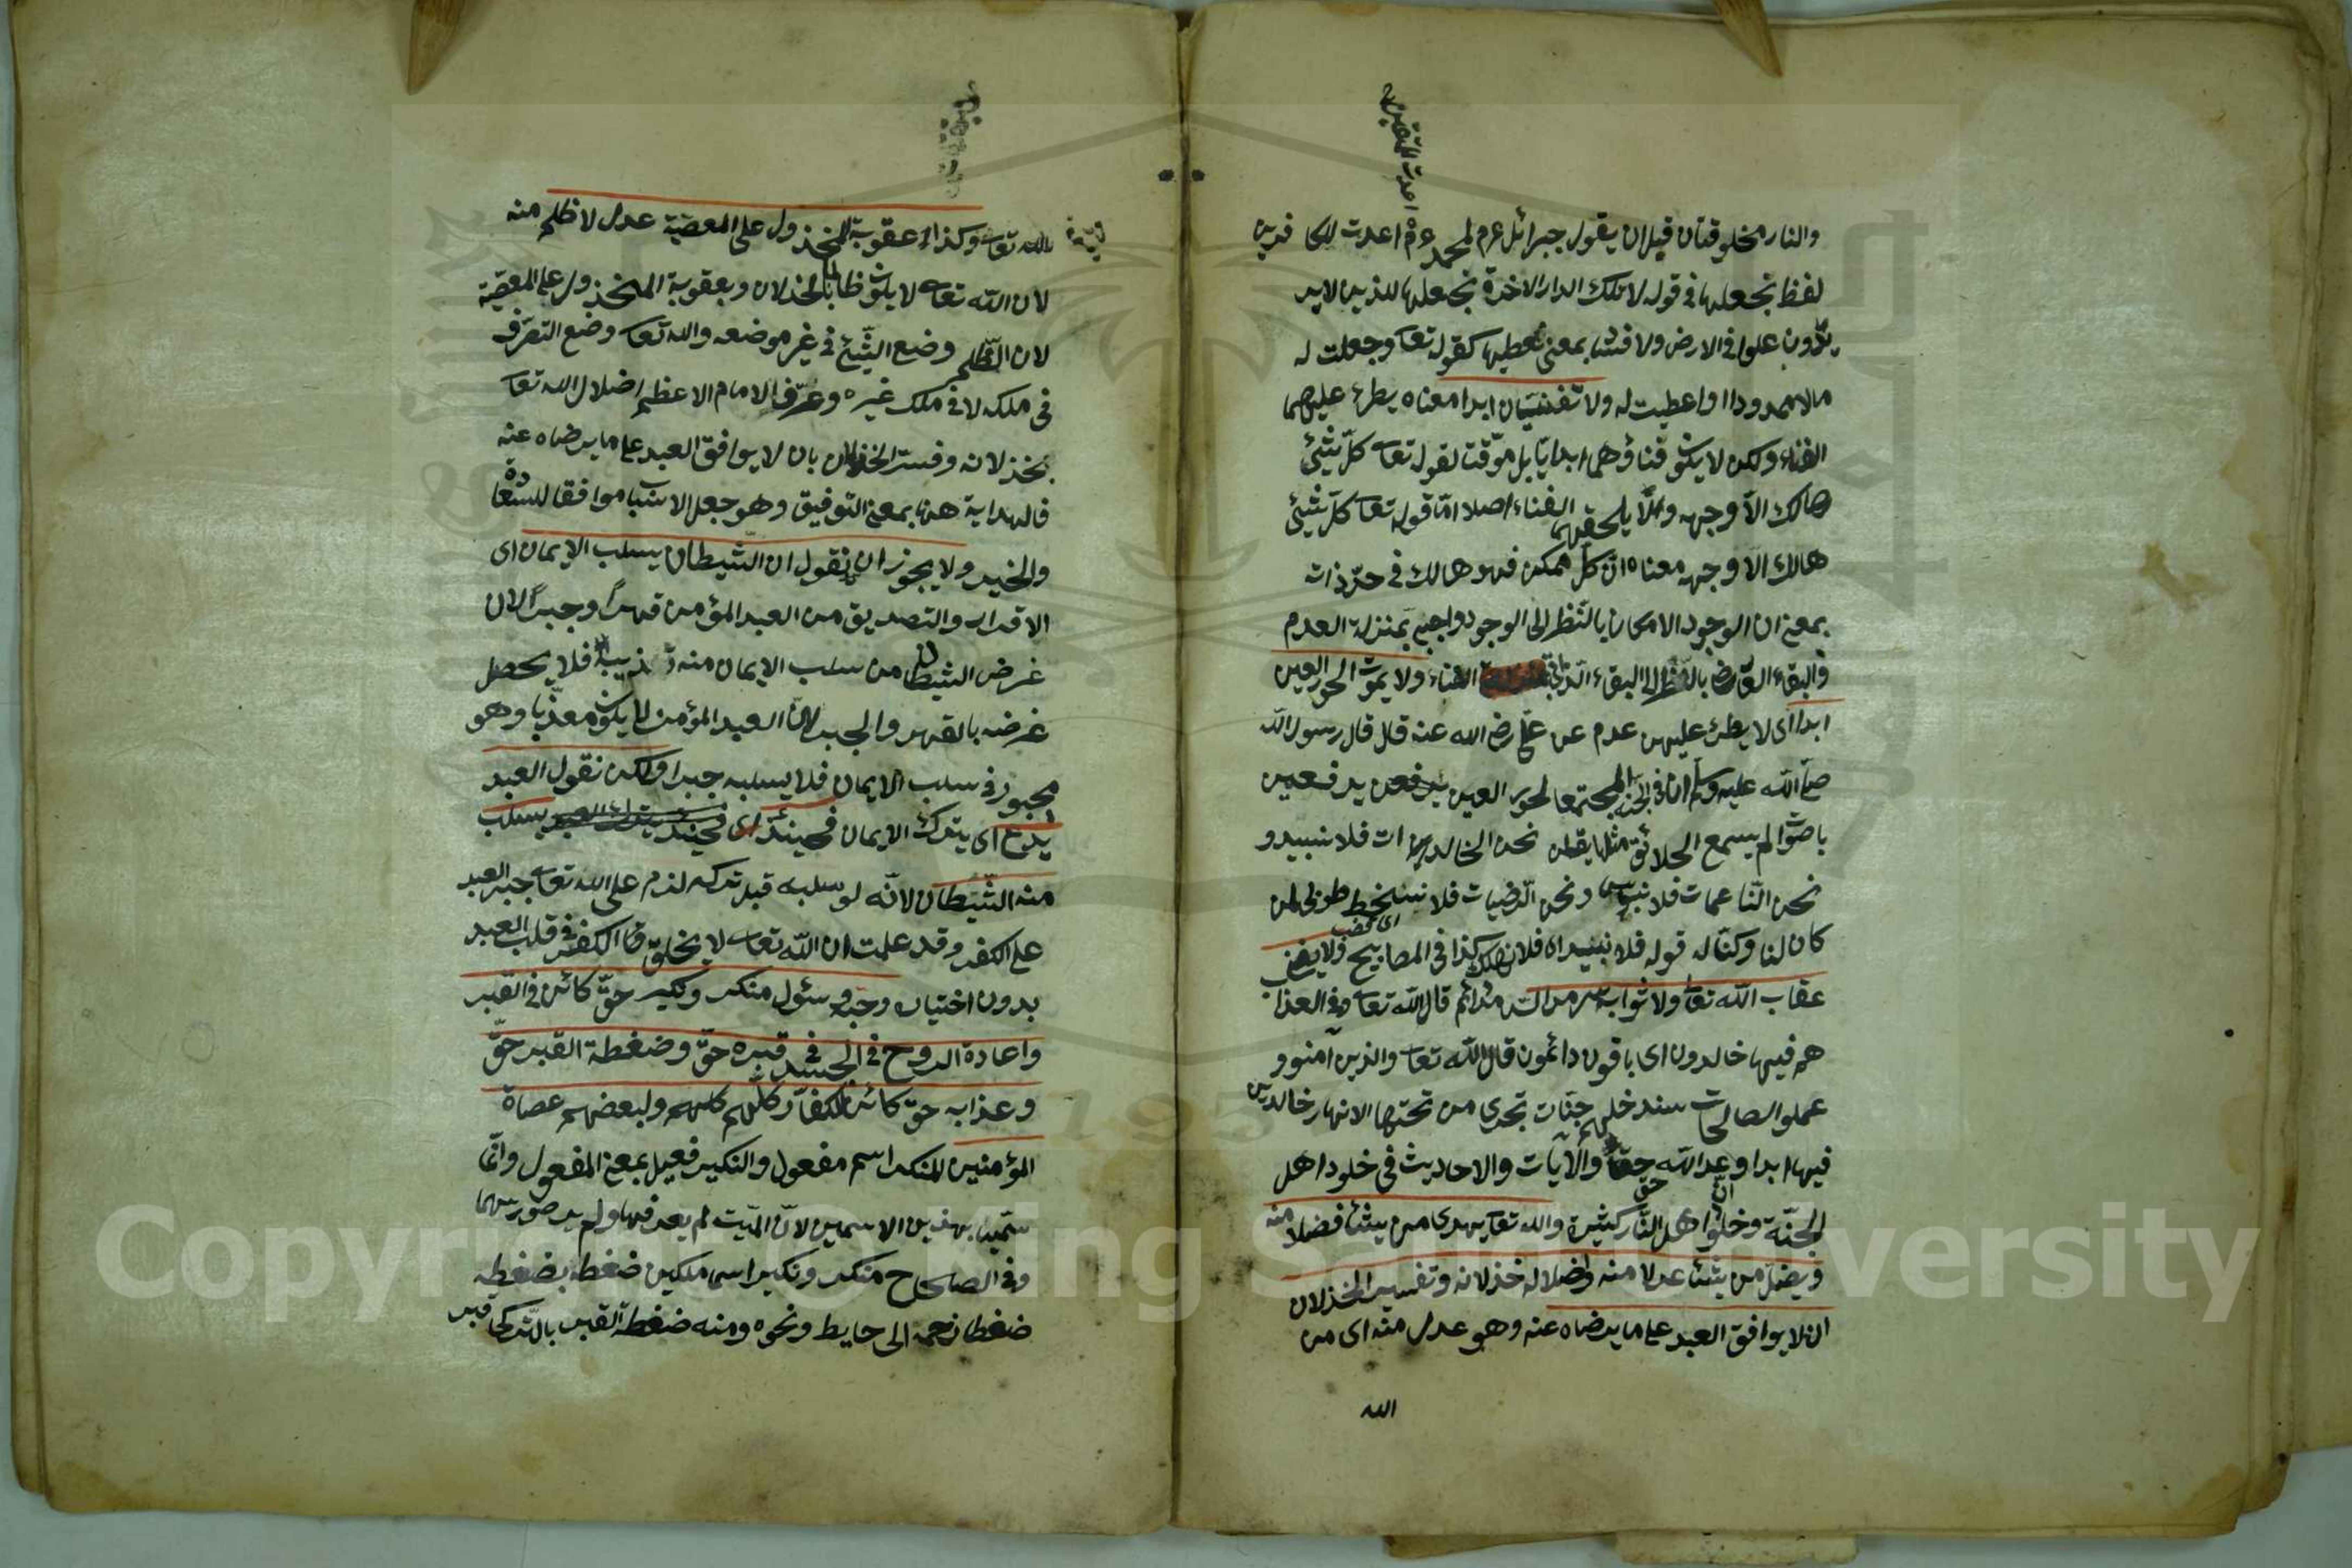 اعدت للمتقين
والنار مخلوقتان قبل ان يقول جبرائل عم لمحمد عم اعدت للكافرين
لفظ نجعلها في قوله لا تلك الدار الاخرة نجعلها للذين لا ير
يدون علوا في الارض ولا فسادا بمعنى نعطيها كقوله تعا وجعلت له
مالا ممدودا اى واعطيت له ولا تفنيان ابدا معناه يطرئ عليهما
الفناء ولكن لا يكون فناؤهما ابديا بل موقت لقوله تعا كل شيئ
هالك الا وجهه والا يلحقهما الفناء اصلا اما قوله تعا كل شيئ
هالك الا وجهه معناه ان كل ممكن فهو هالك في حد ذاته
بمعنى ان الوجود الامكان بالنظر الى الوجود واجبى بمنزلة العدم
والبقاء العارض بالنظر الى البقاء الذاتى الفناء ولا يموت الحور العين
ابدا اى لا يطرئ عليهن عدم عن على رضى الله عنه قال قال رسول الله
صلى الله عليه وسلم ان في الجنة لمجتمعا لحور العين يرفعن
باصوات لم يسمع الخلائق مثلها يقلن نحن الخالدات فلا نبيد و
نحن الناعمات فلا نبؤس ونحن الراضيات فلا نسخط طوبى لمن
كان لنا وكنا له قوله فلا نبيد اى فلا نهلك كذا في المصابيح ولا يفنى
عقاب الله تعا ولا ثوابه سرمدا اى دائم قال الله تعا وفى العذاب
هم فيها خالدون اى باقون دائمون قال الله تعا والذين آمنوا و
عملوا الصالحات سندخلهم جنات تجرى من تحتها الانهار خالدين
فيها ابدا وعد الله حقا والآيات والاحاديث في خلود اهل
الجنة وخلود اهل النار كثيرة والله تعا يهدى من يشاء فضلا منه
ويضل من يشاء عدلا منه واضلاله خذلانه وتفسير الخذلان
ان لا يوافق العبد على ما يرضاه عنه وهو عدل منه اى من
الله
الله تعا وكذا عقوبة المخذول على المعصية عدل لا ظلم منه
لان الله تعا لا يكون ظالما بالخذلان وبعقوبة المخذول على المعصية
لان الظلم وضع الشيئ في غير موضعه والله تعا وضع التصرف
في ملكه لا في ملك غيره وعرف الامام الاعظم اضلال الله تعا
بخذلانه وفسر الخذلان بان لا يوافق العبد على ما يرضاه عنه
فالهداية هنا بمعنى التوفيق وهو جعل الاسباب موافقا للسعادة
والخير ولا يجوز ان نقول ان الشيطان يسلب الايمان اى
الاقرار والتصديق من العبد المؤمن قهرا وجبرا لان
غرض الشيطان من سلب الايمان منه تعذيبه فلا يحصل
غرضه بالقهر والجبر لان العبد المؤمن لا يكون معذبا وهو
مجبور في سلب الايمان فلا يسلبه جبرا ولكن نقول العبد
يدع اى يترك الايمان فحينئذ اى فحينئذ يسلب
منه الشيطان لانه لو سلبه قبل تركه لزم على الله تعا جبر العبد
على الكفر وقد علمت ان الله تعا لا يخلق الكفر في قلب العبد
بدون اختياره وجبر وسئول منكر ونكير حق كائن في القبر
واعادة الروح في الجسد في قبره حق وضغطة القبر حق
وعذابه حق كائن للكفار كلهم ولبعض عصاة
المؤمنين المنكر اسم مفعول والنكير فعيل بمعنى المفعول وانما
سميا بهذين الاسمين لان الميت لم يعرفهما ولم ير صورتهما
وفى الصحاح منكر ونكير اسما ملكين ضغطه يضغطه
ضغطا زحمه الى حايط ونحوه ومنه ضغطة القبر